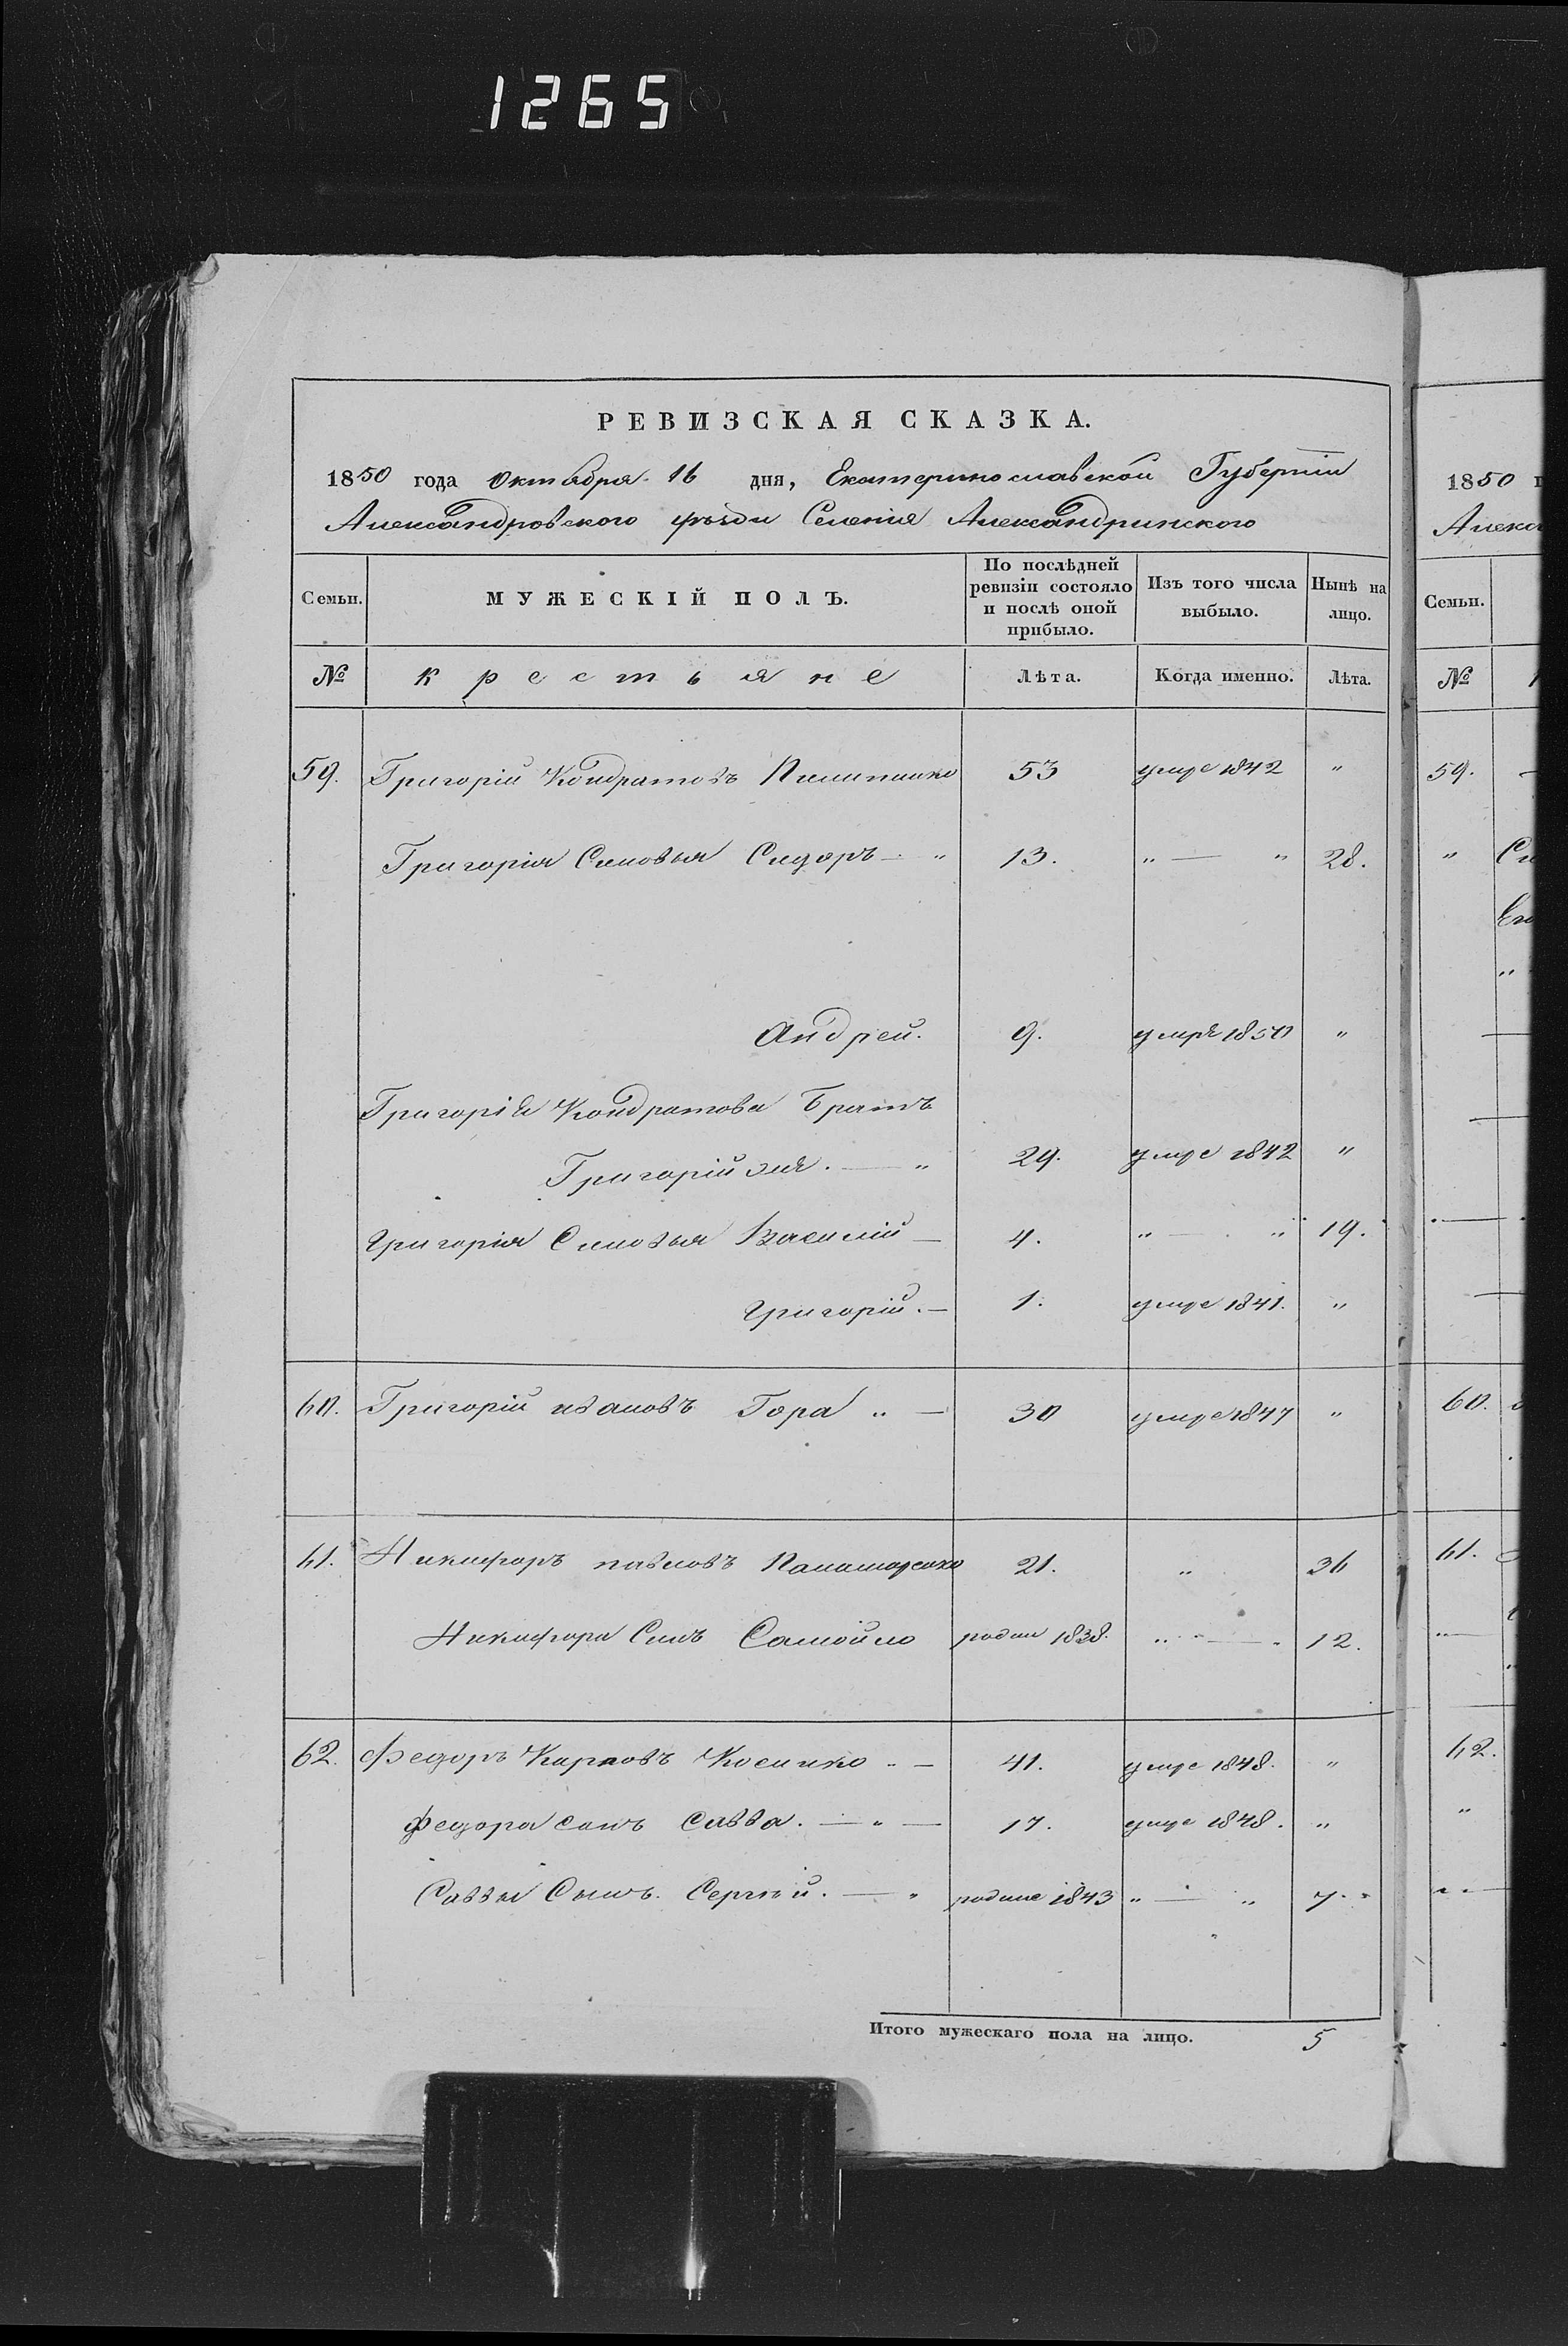 1265
РЕВИЗСКАЯ СКАЗКА.
1850 года Октября 16 дня, Екатеринославской Губернии
Александровского уѣзда Селенія Александринского
Семьи. МУЖЕСКІЙ ПОЛЪ. По послѣдней ревизіи состояло и послѣ оной прибыло. Изъ того числа выбыло. Нынѣ на лицо.
№ крестьяне Лѣта. Когда именно. Лѣта.
59. Григорій Кондратовъ Пилипинко 53 умре 1842 "
Григорія Синовья Сидоръ — " 13. " — " 28.
Андрей. 9. умре 1850 "
Григорія Кондратова Братъ
Григорій же. — " 29. умре 1842 "
Григорія Синовья Василій — 4. " — " 19.
Григорій. — 1. умре 1841. "
60. Григорій ивановъ Гора " — 30 умре 1847 "
61. Никифоръ павловъ 21. " 36
Никифора Синъ Самойло родил 1838. " — " 12.
62. Федоръ Карповъ Косинко " — 41. умре 1848. "
федора синъ Савва. — " — 17. умре 1848. "
Саввы Сынъ. Сергѣй. — " родиле 1843 " — " 7.
Итого мужескаго пола на лицо. 5
1850
Семьи.
№
59.
"
60.
61.
62.
"